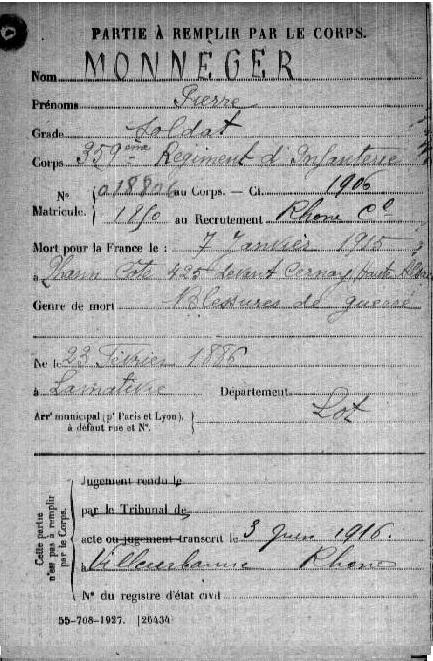 PARTIE À REMPLIR PAR LE CORPS.
Nom MONNÈGER
Prénoms Pierre
Grade Soldat
Corps 359ème Régiment d'Infanterie
N° 018826 au Corps. — Cl. 1906
Matricule. 1850 au Recrutement Rhône Cal
Mort pour la France le : 7 Janvier 1915
à Thann Cote 425 devant Cernay Haute Alsace
Genre de mort Blessures de guerre
Né le 23 Février 1886
à Lamativie Département Lot
Arrt municipal (pr Paris et Lyon),
à défaut rue et N°.
Cette partie
n'est pas à remplir
par le Corps.
Jugement rendu le
par le Tribunal de
acte ou jugement transcrit le 3 Juin 1916.
à Villeurbanne Rhône
N° du registre d'état civil
55-708-1927. [26434